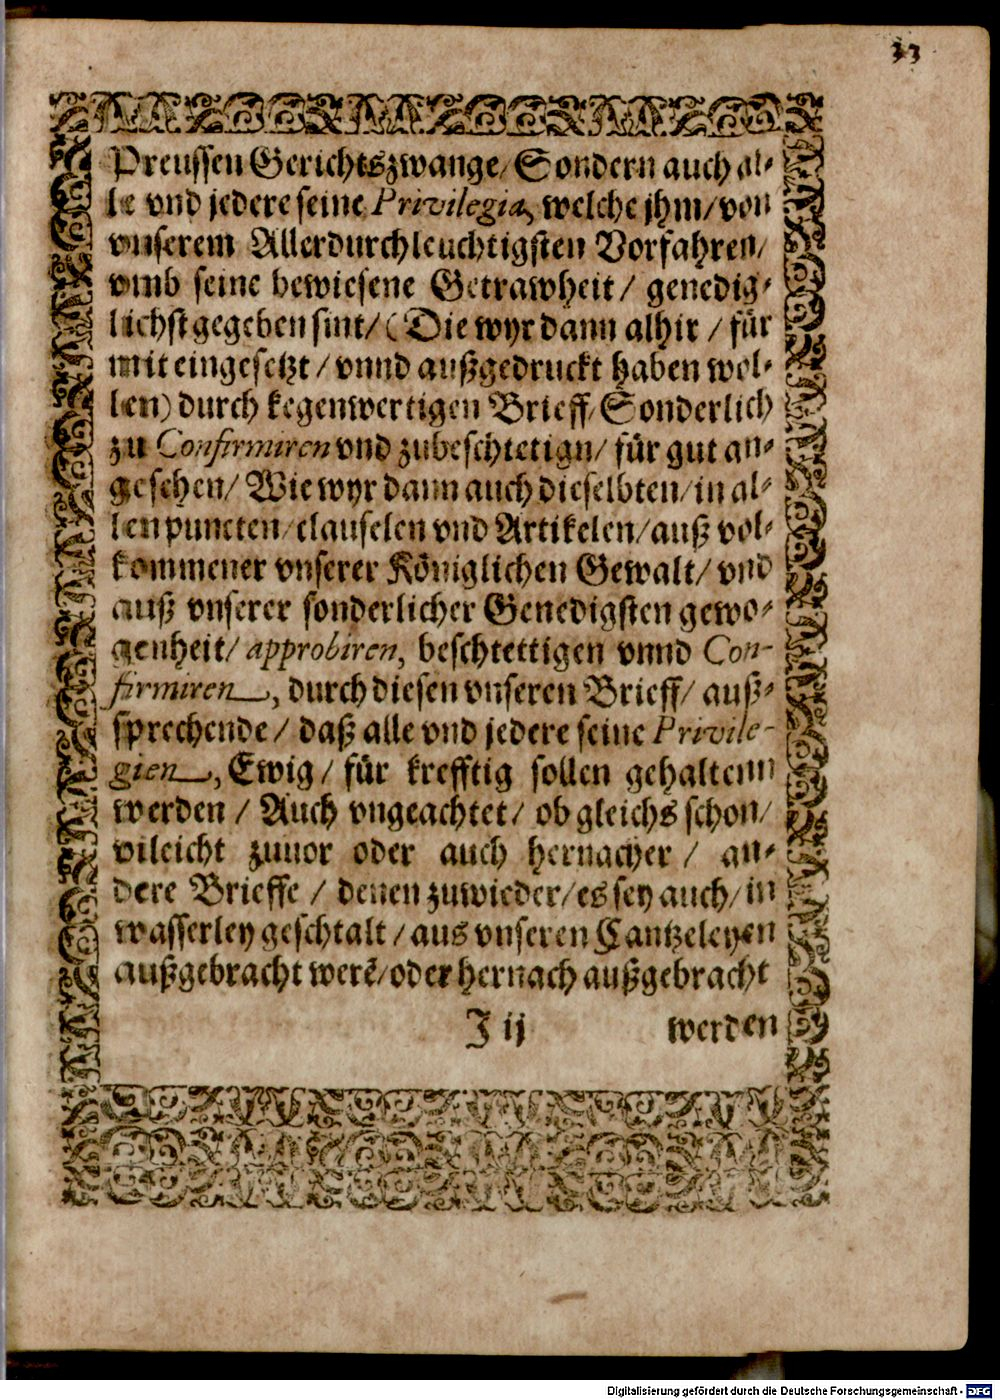 33
Preussen Gerichtszwange/ Sondern auch al-
le vnd jedere seine Privilegia, welche jhm/ von
vnserem Allerdurchleuchtigsten Vorfahren/
vmb seine bewiesene Getrawheit/ genedig-
lichst gegeben sint/ (Die wyr dann alhir / für
mit eingesetzt / vnnd außgedruckt haben wol-
len) durch kegenwertigen Brieff/ Sonderlich
zu Confirmiren vnd zubeschtetign/ für gut an-
gesehen/ Wie wyr dann auch dieselbten/ in al-
len puncten/ clauselen vnd Artikelen/ auß vol-
kommener vnserer Königlichen Gewalt/ vnd
auß vnserer sonderlicher Genedigsten gewo-
genheit/ approbiren, beschtettigen vnnd Con-
firmiren, durch diesen vnseren Brieff/ auß-
sprechende / daß alle vnd jedere seine Privile-
gien, Ewig / für krefftig sollen gehaltenn
werden / Auch vngeachtet / ob gleichs schon/
vileicht zuuor oder auch hernacher / an-
dere Brieffe / denen zuwieder/ es sey auch/ in
wasserley geschtalt / aus vnseren Cantzeleyen
außgebracht werē/ oder hernach außgebracht
J ij werden
Digitalisierung gefördert durch die Deutsche Forschungsgemeinschaft - DFG